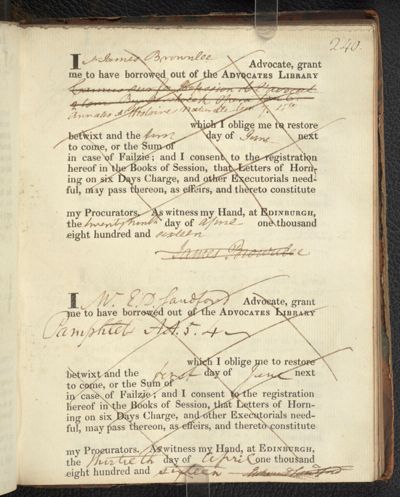 240.
I James Brownlee Advocate, grant
me to have borrowed out of the ADVOCATES LIBRARY
Annales
which I oblige me to restore
betwixt and the first day of June next
to come, or the Sum of
in case of Failzie; and I consent to the registration
hereof in the Books of Session, that Letters of Horn-
ing on six Days Charge, and other Executorials need-
ful, may pass thereon, as effeirs, and thereto constitute
my Procurators. As witness my Hand, at EDINBURGH,
the twenty ninth day of April one thousand
eight hundred and sixteen
James Brownlee
I Mr. E. D. Sandford Advocate, grant
me to have borrowed out of the ADVOCATES LIBRARY
Pamphlets 5. 4
which I oblige me to restore
betwixt and the first day of June next
to come, or the Sum of
in case of Failzie; and I consent to the registration
hereof in the Books of Session, that Letters of Horn-
ing on six Days Charge, and other Executorials need-
ful, may pass thereon, as effeirs, and thereto constitute
my Procurators. As witness my Hand, at EDINBURGH,
the thirtieth day of April one thousand
eight hundred and sixteen